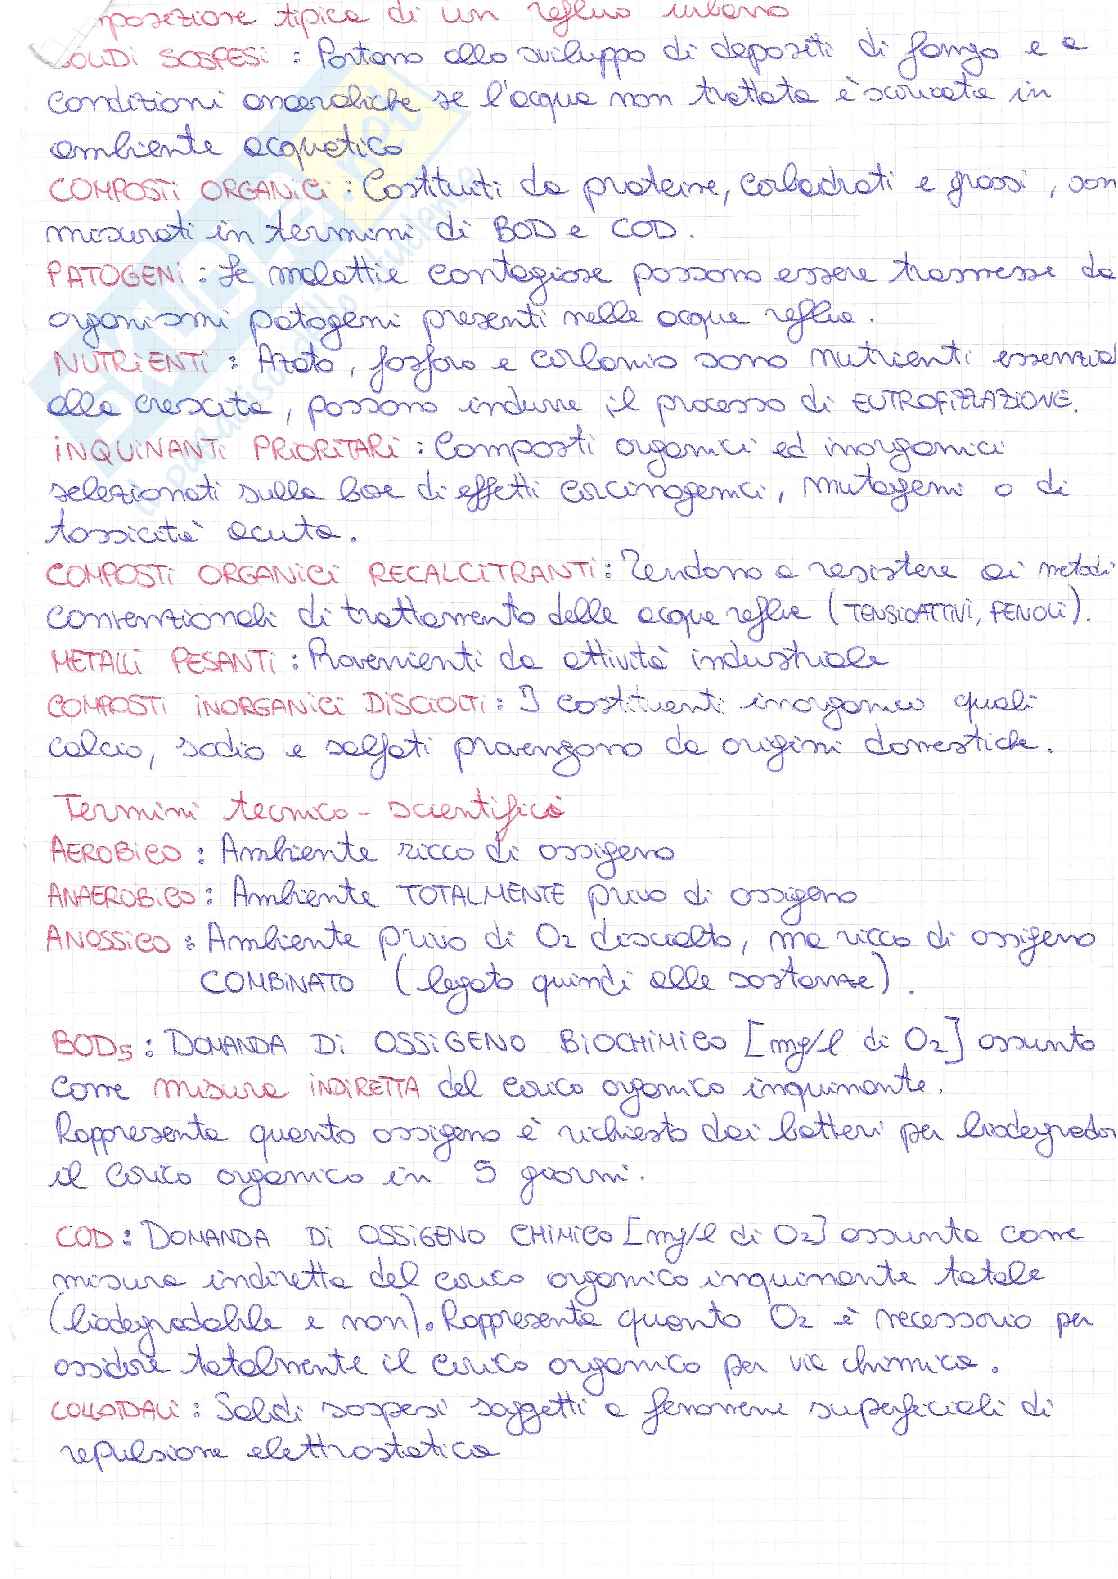 mposizione tipica di un refluo urbano
SOLIDI SOSPESI : Portano allo sviluppo di depositi di fango e a
condizioni anaerobiche se l'acqua non trattata è scaricata in
ambiente acquatico
COMPOSTI ORGANICI : Costituiti da proteine, carboidrati e grassi, son
misurati in termini di BOD e COD.
PATOGENI : Le malattie contagiose possono essere trasmesse da
organismi patogeni presenti nelle acque reflue.
NUTRIENTI : Azoto, fosforo e carbonio sono nutrienti essenzial
alla crescita, possono indurre il processo di EUTROFIZZAZIONE.
INQUINANTI PRIORITARI : Composti organici ed inorganici
selezionati sulla base di effetti carcinogenici, mutageni o di
tossicità acuta.
COMPOSTI ORGANICI RECALCITRANTI : Tendono a resistere ai metodi
convenzionali di trattamento delle acque reflue (TENSIOATTIVI, FENOLI).
METALLI PESANTI : Provenienti da attività industriale
COMPOSTI INORGANICI DISCIOLTI : I costituenti inorganici quali
calcio, sodio e solfati provengono da origini domestiche.
Termini tecnico - scientifici
AEROBICO : Ambiente ricco di ossigeno
ANAEROBICO : Ambiente TOTALMENTE privo di ossigeno
ANOSSICO : Ambiente privo di O2 disciolto, ma ricco di ossigeno
COMBINATO (legato quindi alle sostanze).
BOD5 : DOMANDA DI OSSIGENO BIOCHIMICO [mg/l di O2] assunto
come misura INDIRETTA del carico organico inquinante.
Rappresenta quanto ossigeno è richiesto dai batteri per biodegradar
il carico organico in 5 giorni.
COD : DOMANDA DI OSSIGENO CHIMICO [mg/l di O2] assunta come
misura indiretta del carico organico inquinante totale
(biodegradabile e non). Rappresenta quanto O2 è necessario per
ossidare totalmente il carico organico per via chimica.
COLLOIDALI : Solidi sospesi soggetti a fenomeni superficiali di
repulsione elettrostatica